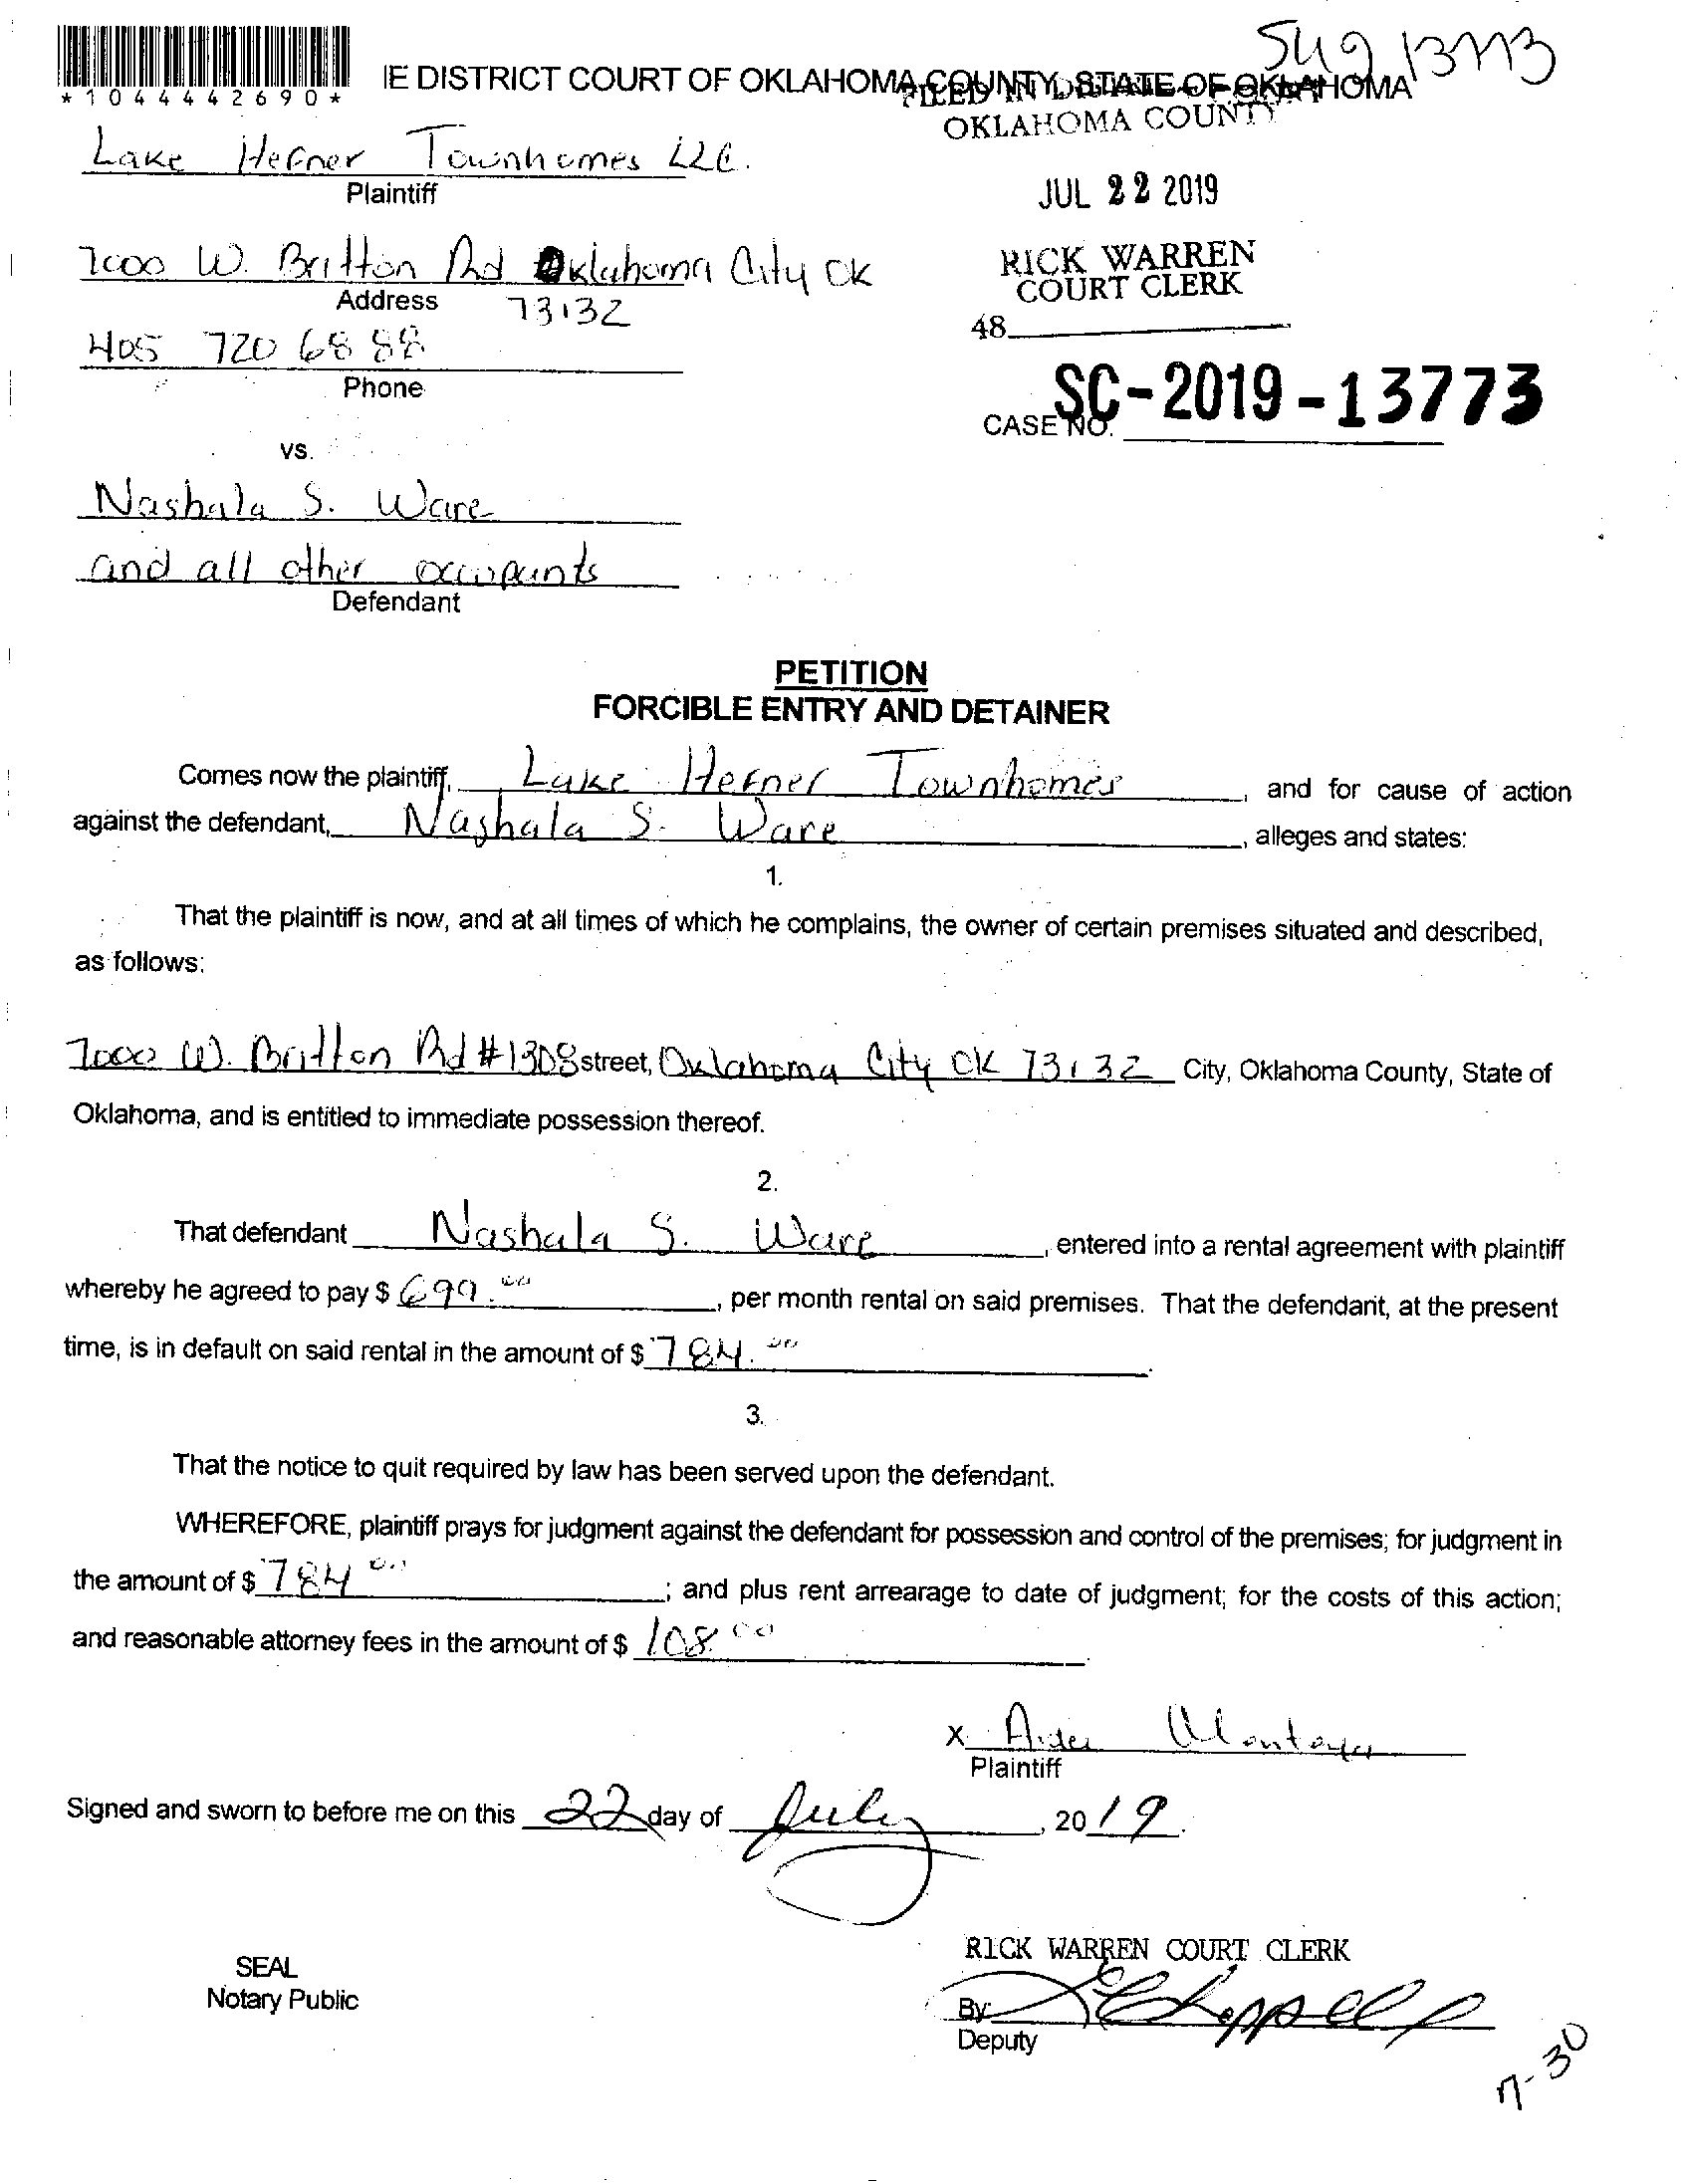 *1044442690*
IE DISTRICT COURT OF OKLAHOMA COUNTY, STATE OF OKLAHOMA
FILED IN DISTRICT COURT
OKLAHOMA COUNTY
Lake Hefner Townhomes LLC.
Plaintiff
JUL 22 2019
7000 W. Britton Rd Oklahoma City OK
Address 73132
RICK WARREN
COURT CLERK
48
405 720 6888
Phone
CASE NO. SC-2019-13773
vs.
Nashala S. Ware
and all other occupants
Defendant
PETITION
FORCIBLE ENTRY AND DETAINER
Comes now the plaintiff, Lake Hefner Townhomes, and for cause of action
against the defendant, Nashala S. Ware, alleges and states:
1.
That the plaintiff is now, and at all times of which he complains, the owner of certain premises situated and described,
as follows:
7000 W. Britton Rd #1308 street, Oklahoma City OK 73132 City, Oklahoma County, State of
Oklahoma, and is entitled to immediate possession thereof.
2.
That defendant Nashala S. Ware, entered into a rental agreement with plaintiff
whereby he agreed to pay $ 699.00, per month rental on said premises. That the defendant, at the present
time, is in default on said rental in the amount of $ 784.00.
3.
That the notice to quit required by law has been served upon the defendant.
WHEREFORE, plaintiff prays for judgment against the defendant for possession and control of the premises; for judgment in
the amount of $ 784 00; and plus rent arrearage to date of judgment; for the costs of this action;
and reasonable attorney fees in the amount of $ 108.00.
X Aidee Montoya
Plaintiff
Signed and sworn to before me on this 22 day of July, 2019.
SEAL
Notary Public
RICK WARREN COURT CLERK
By:
Deputy
7-30